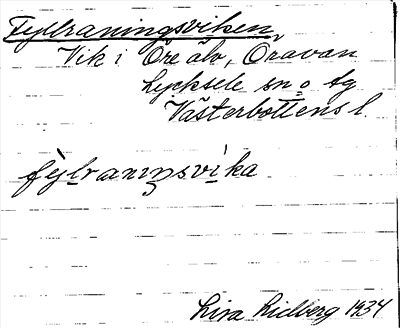 Fyllraningsviken
Vik i Öre älv, Öravan
Lycksele sn o tg
Västerbottens l.
fy̆lraniŋsvika
Lisa Lidberg 1934